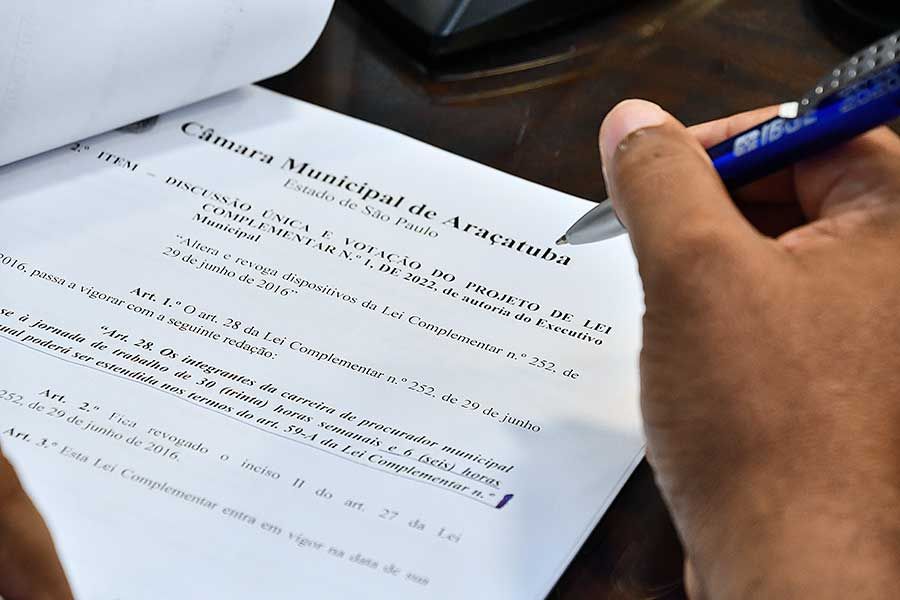 Câmara Municipal de Araçatuba
Estado de São Paulo
2.º ITEM – DISCUSSÃO ÚNICA E VOTAÇÃO DO PROJETO DE LEI
COMPLEMENTAR N.º 1, DE 2022, de autoria do Executivo
Municipal
"Altera e revoga dispositivos da Lei Complementar n.º 252, de
29 de junho de 2016"
Art. 1.º O art. 28 da Lei Complementar n.º 252, de 29 de junho
2016, passa a vigorar com a seguinte redação:
"Art. 28. Os integrantes da carreira de procurador municipal
se à jornada de trabalho de 30 (trinta) horas semanais e 6 (seis) horas
poderá ser estendida nos termos do art. 59-A da Lei Complementar n.º
Art. 2.º Fica revogado o inciso II do art. 27 da Lei
252, de 29 de junho de 2016.
Art. 3.º Esta Lei Complementar entra em vigor na data de sua
IBGE
2020